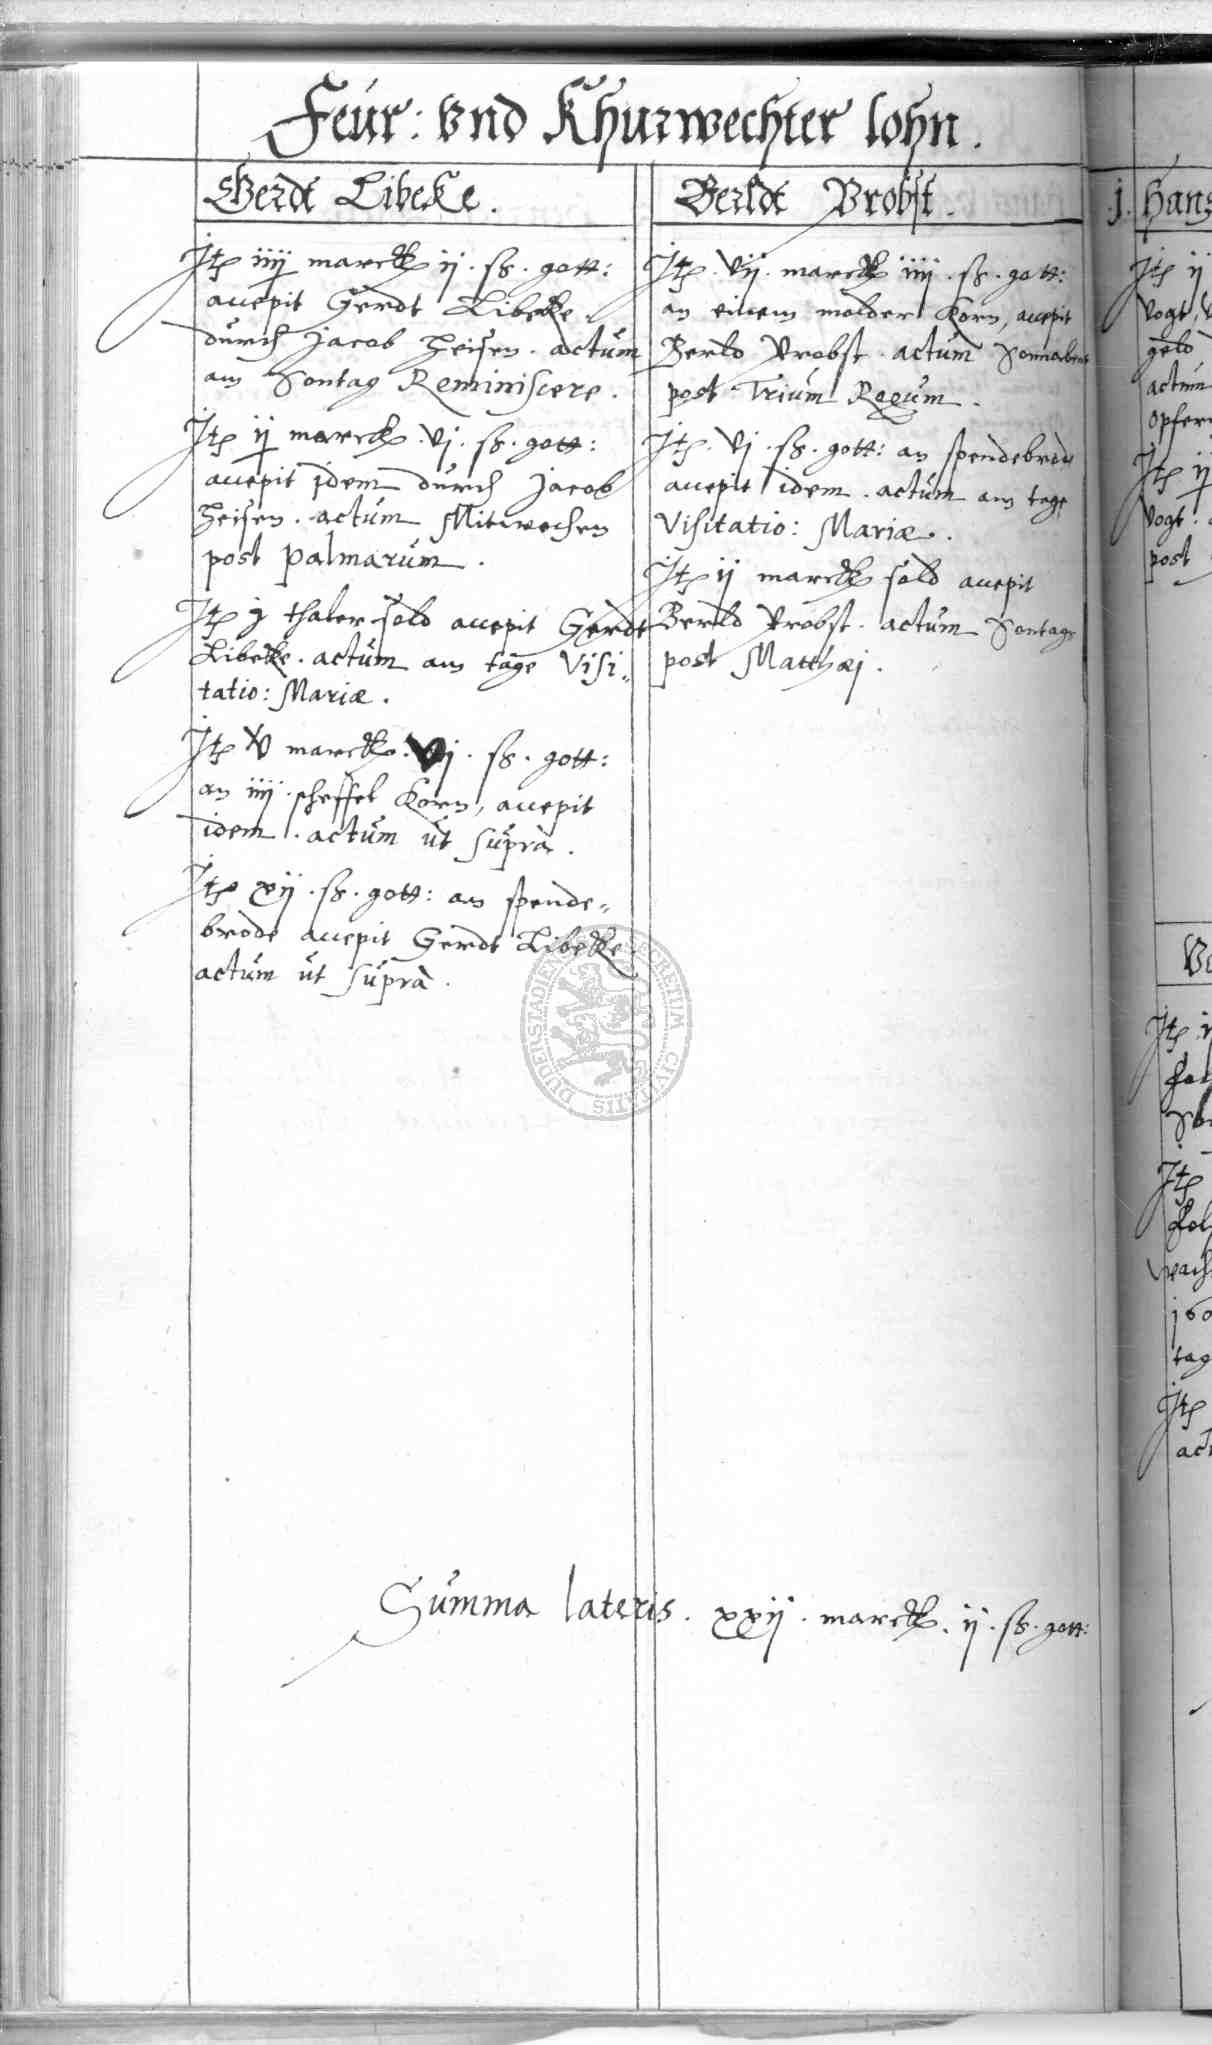 Feür: vnd Khurwechter lohn.
Gerdt Libeke.
Jtꝭ iiij marck ij. ss. gott:
accepit Gerdt Libeke
durch Jacob Heisen. actum
am Sontag Reminiscere.
Jtꝭ ij marck. vj. ss. gott:
accepit idem durch Jacob
Heisen. actum Mitwechen
post palmarum.
Jtꝭ j thaler sold accepit Gerdt
Libeke. actum am tage Visi„
tatio: Mariæ.
Jtꝭ v marck. vj. ss. gott:
an iiij scheffel Korn, accepit
idem. actum ut suprà.
Jtꝭ xij. ss. gott: an spende„
brode accepit Gerdt Libeke
actum ut suprà.
Berldt Probst.
Jtꝭ. vij. marck iiij. ss. gott:
an einem malder Korn, accepit
Berld Probst. actum Sonnabent
post Trium Regum.
Jtꝭ. vj. ss. gott: an spendebrod
accepit idem. actum am tage
Visitatio: Mariæ.
Jtꝭ ij marck sold accepit
Berld Probst. actum Sontags
post Matthæj.
Summa lateris. xxij. marck. ij. ss. gott:
j. Hans
Jtꝭ ij
Vogt,
geld
actum
opfer
Jtꝭ ij
Vogt.
post
Jtꝭ
Jtꝭ
160
tag
Jtꝭ
act
SECRETUM CIVITATIS DUDERSTADIENSIS